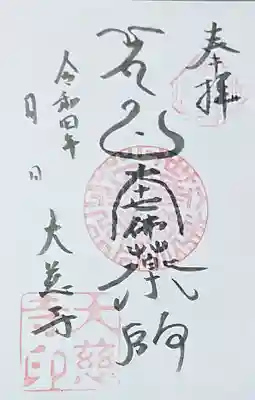 奉拝
岩山
七佛薬師
令和四年
月 日
大慈寺
大慈
寺印